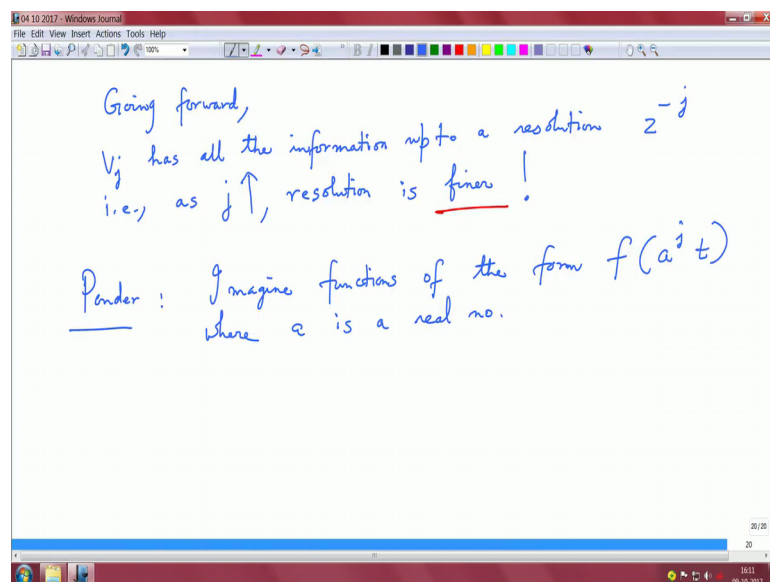 04 10 2017 - Windows Journal
File Edit View Insert Actions Tools Help
100%
Going forward,
V_j has all the information upto a resolution 2^{-j}
i.e., as j ↑, resolution is finer !
Ponder : Imagine functions of the form f(a^j t)
where a is a real no.
20/20
20
16:11
09-10-2017